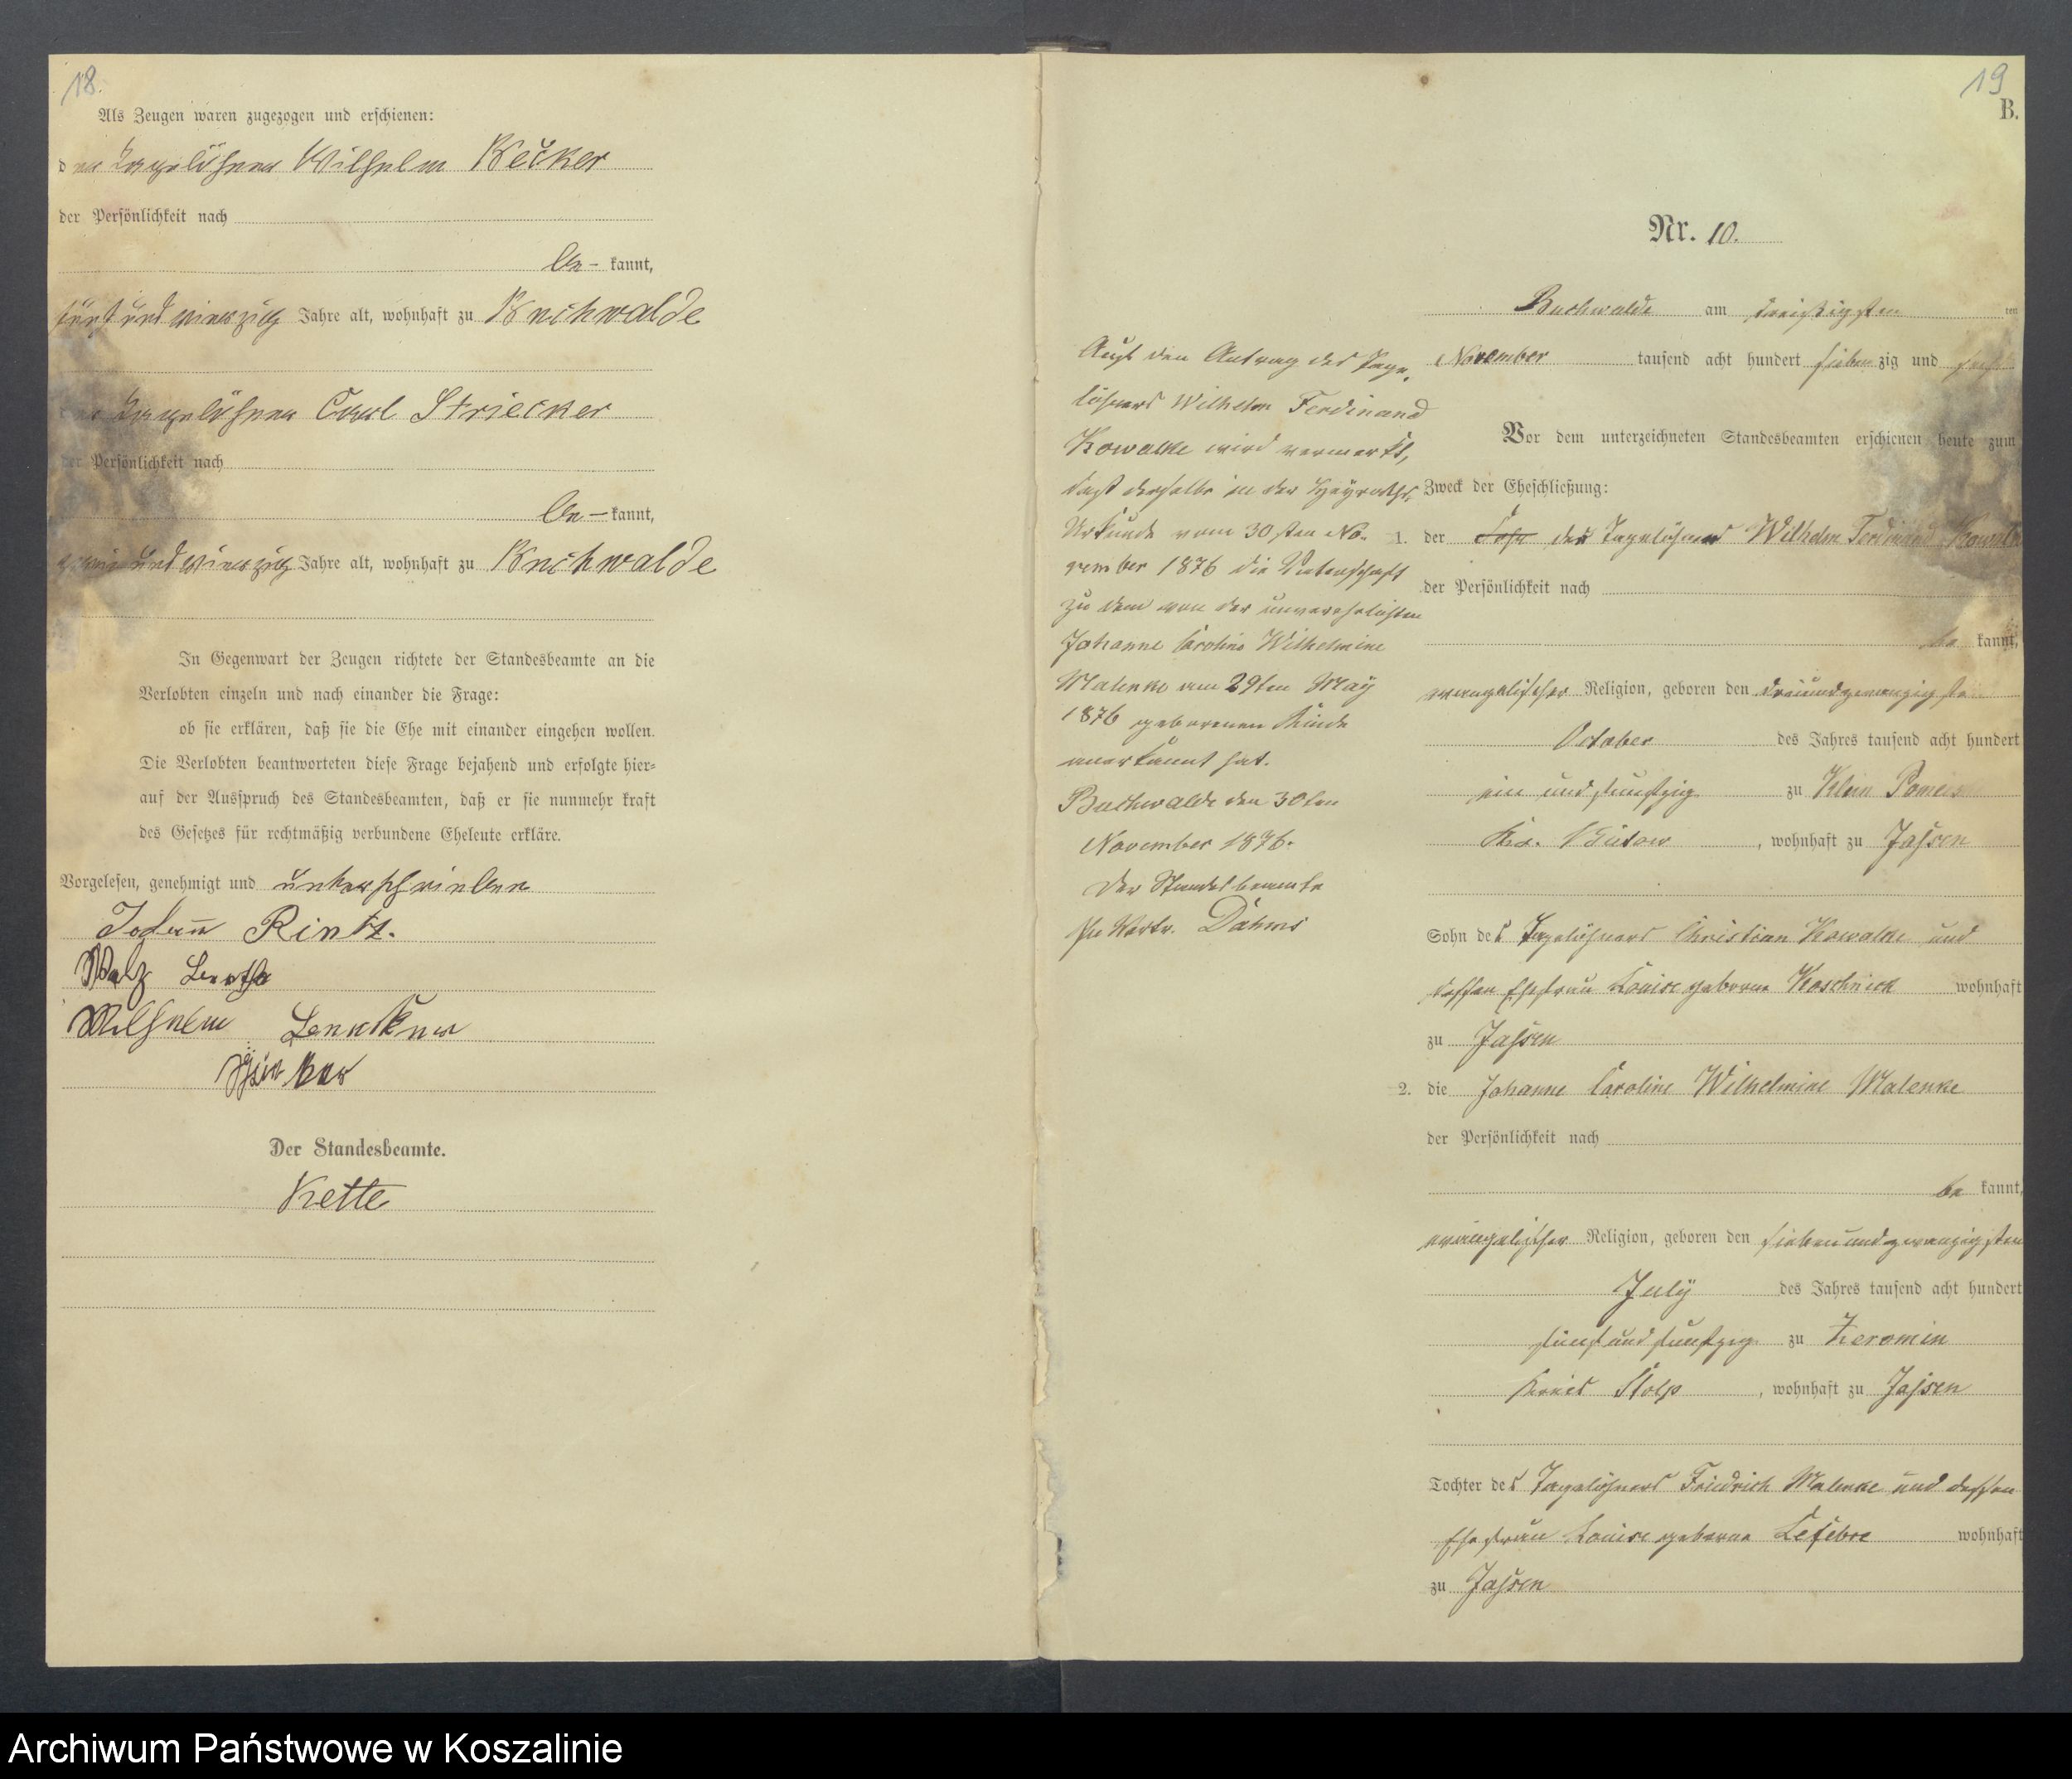 18.
Als Zeugen waren zugezogen und erschienen:
den Tagelöhner Wilhelm Becker
der Persönlichkeit nach
be- kannt,
fünf und vierzig Jahre alt, wohnhaft zu Buchwalde
Tagelöhner Carl Striecker
der Persönlichkeit nach
be- kannt,
und vierzig Jahre alt, wohnhaft zu Buchwalde
In Gegenwart der Zeugen richtete der Standesbeamte an die
Verlobten einzeln und nach einander die Frage:
ob sie erklären, daß sie die Ehe mit einander eingehen wollen.
Die Verlobten beantworteten diese Frage bejahend und erfolgte hier-
auf der Ausspruch des Standesbeamten, daß er sie nunmehr kraft
des Gesetzes für rechtmäßig verbundene Eheleute erkläre.
Vorgelesen, genehmigt und unterschrieben
Johann
Wilhelm
Der Standesbeamte.
Kette
19
B.
Nr. 10.
Buchwalde am dreißigsten ten
November tausend acht hundert sieben zig und sechs
Vor dem unterzeichneten Standesbeamten erschienen heute zum
Zweck der Eheschließung:
1. der Sohn des Tagelöhner Wilhelm Ferdinand Kowalke
der Persönlichkeit nach
be kannt,
evangelischer Religion, geboren den dreiundzwanzigsten
October des Jahres tausend acht hundert
ein und funfzig zu Klein Pomeis
Krs. Bütow, wohnhaft zu Jassen
Sohn des Tagelöhners Christian Kowalke und
dessen Ehefrau Louise geborne Koschnick wohnhaft
zu Jassen
2. die Johanne Caroline Wilhelmine Malenke
der Persönlichkeit nach
be kannt,
evangelischer Religion, geboren den siebenundzwanzigsten
July des Jahres tausend acht hundert
fünf und funfzig zu Zeromin
Kreis Stolp, wohnhaft zu Jassen
Tochter des Tagelöhners Friedrich Malenke und dessen
Ehefrau Louise geborne Lefebre wohnhaft
zu Jassen
Auf den Antrag des Tage-
löhners Wilhelm Ferdinand
Kowalke wird vermerkt,
daß derselbe in der Heyraths-
Urkunde vom 30sten No-
vember 1876 die Vaterschaft
zu dem von der unverehelichten
Johanne Caroline Wilhelmine
Malenke am 29ten May
1876 geborenen Kinde
anerkannt hat.
Buchwalde den 30ten
November 1876.
Der Standesbeamte
In Vertr. Dahms
Archiwum Państwowe w Koszalinie